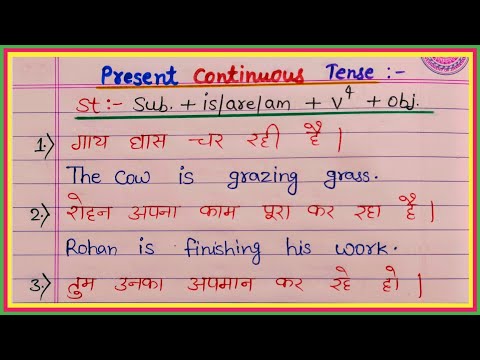 Present Continuous Tense :-
St :- Sub. + is/are/am + V⁴ + obj.
1.) गाय घास चर रही है |
The cow is grazing grass.
2.) रोहन अपना काम पूरा कर रहा है |
Rohan is finishing his work.
3.) तुम उनका अपमान कर रहे हो |